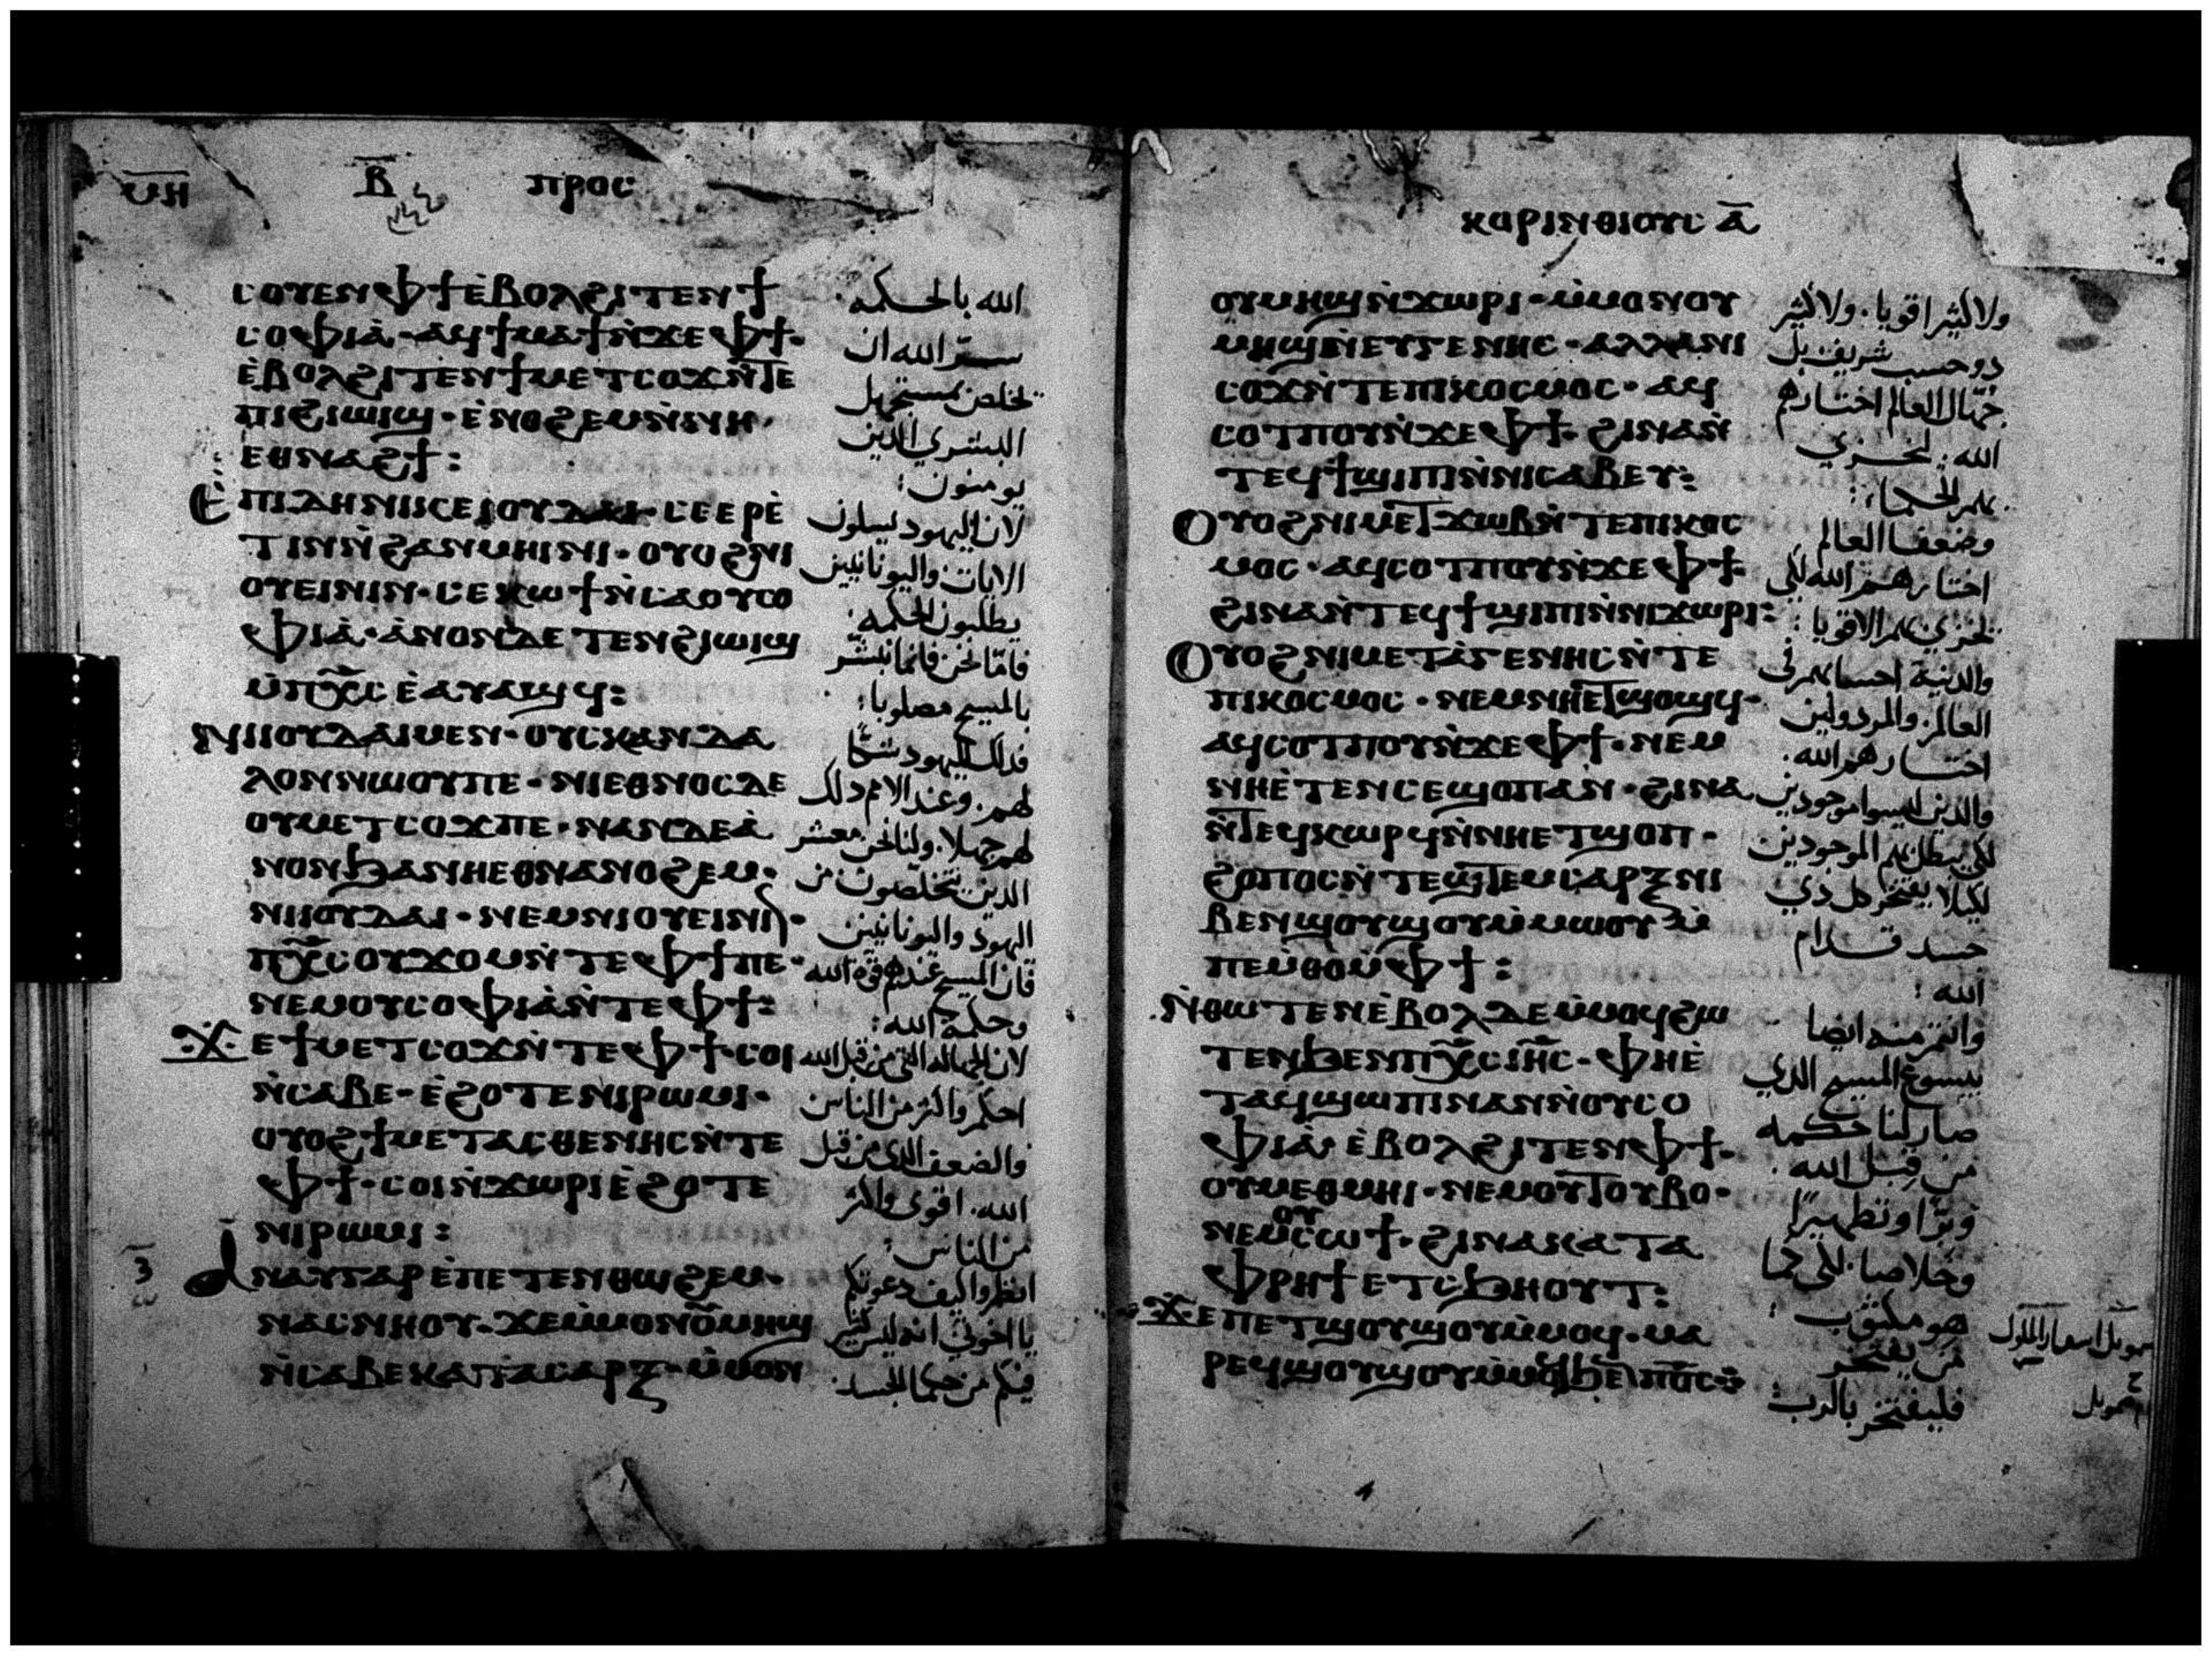 ⲙⲏ ⲃ ⲡⲣⲟⲥ
ⲥⲟⲩⲉⲛⲫϯⲉ̀ⲃⲟⲗϩⲓⲧⲉⲛϯ
ⲥⲟⲫⲓⲁ̀·ⲁϥϯⲙⲁϯⲛ̀ϫⲉⲫϯ·
ⲉ̀ⲃⲟⲗϩⲓⲧⲉⲛϯⲙⲉⲧⲥⲟϫⲛ̀ⲧⲉ
ⲡⲓϩⲓⲱⲓϣ·ⲉ̀ⲛⲟϩⲉⲙⲛ̀ⲛⲏ·
ⲉⲑⲛⲁϩϯ:
ⲉ̀ⲡⲓⲇⲏⲛⲓⲕⲉⲓⲟⲩⲇⲁⲓ·ⲥⲉⲉⲣⲉ̀
ⲧⲓⲛⲛ̀ϩⲁⲛⲙⲏⲓⲛⲓ·ⲟⲩⲟϩⲛⲓ
ⲟⲩⲉⲓⲛⲓⲛ·ⲥⲉⲕⲱϯⲛ̀ⲥⲁⲟⲩⲥⲟ
ⲫⲓⲁ̀·ⲁ̀ⲛⲟⲛⲇⲉⲧⲉⲛϩⲓⲱⲓϣ
ⲙ̀ⲡⲭ̅ⲥ̅ⲉ̀ⲁⲩⲁϣϥ:
ⲛⲓⲓⲟⲩⲇⲁⲓⲙⲉⲛ·ⲟⲩⲥⲕⲁⲛⲇⲁ
ⲗⲟⲛⲛⲱⲟⲩⲡⲉ·ⲛⲓⲉⲑⲛⲟⲥⲇⲉ
ⲟⲩⲙⲉⲧⲥⲟϫⲡⲉ·ⲛⲁⲛⲇⲉⲁ̀
ⲛⲟⲛϧⲁⲛⲏⲉⲑⲛⲁⲛⲟϩⲉⲙ·
ⲛⲓⲓⲟⲩⲇⲁⲓ·ⲛⲉⲙⲛⲓⲟⲩⲉⲓⲛⲓⲛ·
ⲡⲭ̅ⲥ̅ⲟⲩϫⲟⲙⲛ̀ⲧⲉⲫϯⲡⲉ·
ⲛⲉⲙⲟⲩⲥⲟⲫⲓⲁ̀ⲛ̀ⲧⲉⲫϯ:
ϫⲉϯⲙⲉⲧⲥⲟϫⲛ̀ⲧⲉⲫϯ·ⲥⲟⲓ
ⲛ̀ⲥⲁⲃⲉ·ⲉ̀ϩⲟⲧⲉⲛⲓⲣⲱⲙⲓ·
ⲟⲩⲟϩϯⲙⲉⲧⲁⲥⲑⲉⲛⲏⲥⲛ̀ⲧⲉ
ⲫϯ·ⲥⲟⲓⲛ̀ϫⲱⲣⲓⲉ̀ϩⲟⲧⲉ
ⲛⲓⲣⲱⲙⲓ:
ⲁ̀ⲛⲁⲩⲅⲁⲣⲉ̀ⲡⲉⲧⲉⲛⲑⲱϩⲉⲙ·
ⲛⲁⲥⲛⲏⲟⲩ·ϫⲉⲙ̀ⲙⲟⲛⲟⲩⲙⲏϣ
ⲛ̀ⲥⲁⲃⲉⲕⲁⲧⲁⲥⲁⲣⲝ·ⲙ̀ⲙⲟⲛ
الله بالحكمه
سر الله ان
يخلص بمستجهل
البشري الذين
يومنون:
لان اليهود يسلون
الايات واليونانيين
يطلبون الحكمه:
فاما نحن فانما نبشر
بالمسيح مصلوبا:
فذلك لليهود شكًا
لهم. وعند الامم ذلك
لهم جهلا. ولنا نحن معشر
الذين يتخلصون من
اليهود واليونانيين
فان المسيح عندهم قوة الله
وحكمة الله:
لان الجهاله التي من قبل الله
احكم واكثر من الناس
والضعف الذي من قبل
الله. اقوى واكثر
من الناس:
انظروا كيف دعوتكم
يا اخوتي انه ليس كثير
فيكم من حكما الجسد
ⲕⲟⲣⲓⲛⲑⲓⲟⲩⲥ ⲁ̅
ⲟⲩⲙⲏϣⲛ̀ϫⲱⲣⲓ·ⲙ̀ⲙⲟⲛⲟⲩ
ⲙⲏϣⲛ̀ⲉⲩⲅⲉⲛⲏⲥ·ⲁⲗⲗⲁⲛⲓ
ⲥⲟϫⲛ̀ⲧⲉⲡⲓⲕⲟⲥⲙⲟⲥ·ⲁϥ
ⲥⲟⲧⲡⲟⲩⲛ̀ϫⲉⲫϯ·ϩⲓⲛⲁⲛ̀
ⲧⲉϥϯϣⲓⲡⲓⲛ̀ⲛⲓⲥⲁⲃⲉⲩ:
ⲟⲩⲟϩⲛⲓⲙⲉⲧϫⲱⲃⲛ̀ⲧⲉⲡⲓⲕⲟⲥ
ⲙⲟⲥ·ⲁϥⲥⲟⲧⲡⲟⲩⲛ̀ϫⲉⲫϯ·
ϩⲓⲛⲁⲛ̀ⲧⲉϥϯϣⲓⲡⲓⲛ̀ⲛⲓϫⲱⲣⲓ:
ⲟⲩⲟϩⲛⲓⲙⲉⲧⲁ̀ⲅⲉⲛⲏⲥⲛ̀ⲧⲉ
ⲡⲓⲕⲟⲥⲙⲟⲥ·ⲛⲉⲙⲛⲏⲉⲧϣⲟϣϥ·
ⲁϥⲥⲟⲧⲡⲟⲩⲛ̀ϫⲉⲫϯ·ⲛⲉⲙ
ⲛⲏⲉ̀ⲧⲉⲛⲥⲉϣⲟⲡⲁⲛ·ϩⲓⲛⲁ
ⲛ̀ⲧⲉϥⲕⲱⲣϥⲛ̀ⲛⲏⲉⲧϣⲟⲡ·
ϩⲟⲡⲟⲥⲛ̀ⲧⲉϣⲧⲉⲙⲥⲁⲣⲝⲛⲓ
ⲃⲉⲛϣⲟⲩϣⲟⲩⲙ̀ⲙⲱⲟⲩⲙ̀
ⲡⲉⲙⲑⲟⲙ̀ⲫϯ:
ⲛ̀ⲑⲱⲧⲉⲛⲉ̀ⲃⲟⲗⲇⲉⲙ̀ⲙⲟϥϩⲱ
ⲧⲉⲛϧⲉⲛⲡⲭ̅ⲥ̅ⲓⲏ̅ⲥ̅·ⲫⲏⲉ̀
ⲧⲁϥϣⲱⲡⲓⲛⲁⲛⲛ̀ⲟⲩⲥⲟ
ⲫⲓⲁ̀ⲉ̀ⲃⲟⲗϩⲓⲧⲉⲛⲫϯ·
ⲟⲩⲙⲉⲑⲙⲏⲓ·ⲛⲉⲙⲟⲩⲧⲟⲩⲃⲟ·
ⲛⲉⲙⲟⲩⲥⲱϯ·ϩⲓⲛⲁⲕⲁⲧⲁ
ⲫⲣⲏϯⲉⲧⲥϧⲏⲟⲩⲧ:
ϫⲉⲡⲉⲧϣⲟⲩϣⲟⲩⲙ̀ⲙⲟϥ·ⲙⲁ
ⲣⲉϥϣⲟⲩϣⲟⲩⲙ̀ⲙⲟϥϧⲉⲛⲡⲟ̅ⲥ̅
ولا كثير اقويا. ولا كثير
ذو حسب شريف بل
جهال العالم اختارهم
الله: لخزي
بهم الحكما:
وضعفا العالم
اختارهم الله لكي
يخزي بهم الاقويا:
والدنية احسابهم في
العالم. والمرذولين
اختارهم الله.
والذين ليسوا موجودين
لكي يبطل بهم الموجودين
لكيلا يفتخر كل ذي
جسد قدام
الله:
وانتم منه ايضا
بيسوع المسيح الذي
صار لنا حكمه
من قبل الله.
وبرًا وتطهيرًا
وخلاصا. لكي كما
هو مكتوب:
من يفتخر
فليفتخر بالرب: